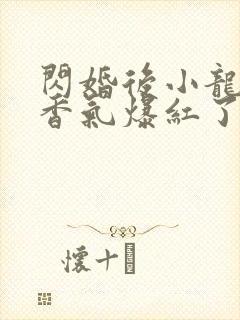 閃婚後小龍
香氣爆紅了
懷十